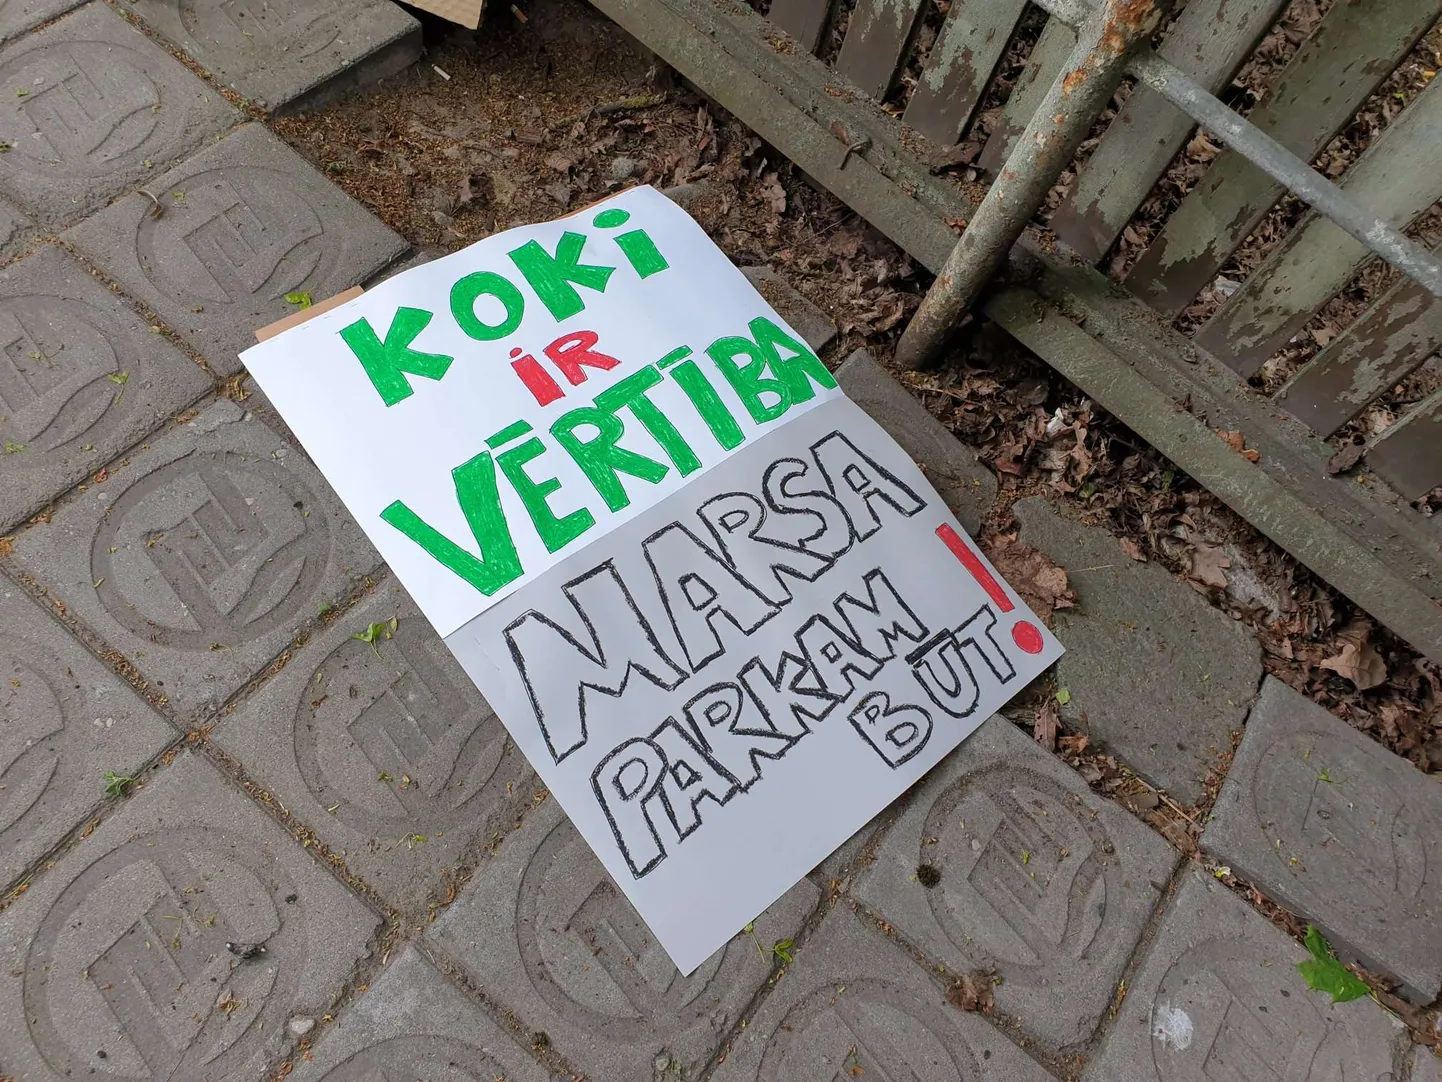 KOKi
iR
VĒRTĪBA
MARSA
PARKAM
BŪT!